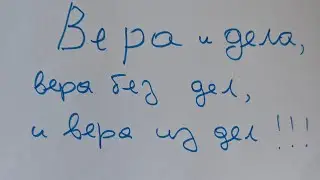 Вера и дела,
вера без дел,
и вера из дел!!!